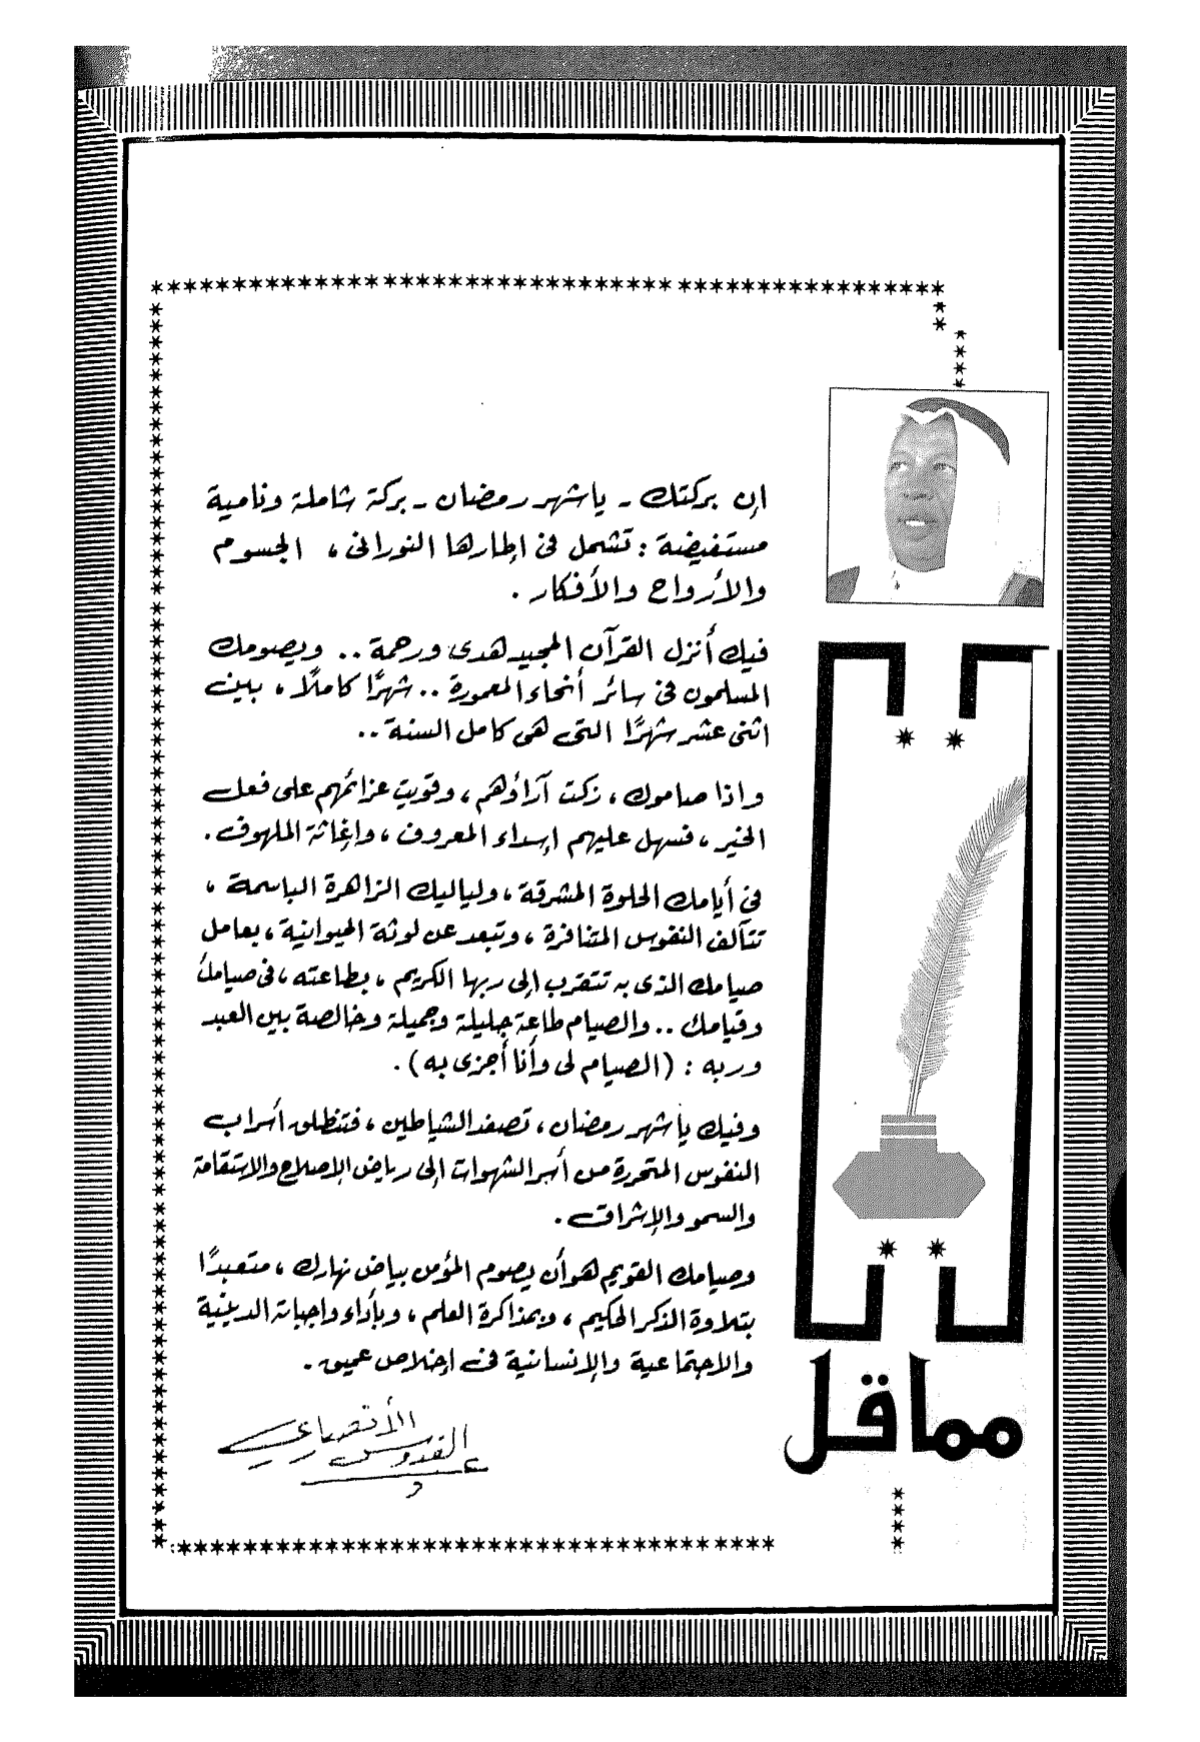 إن بركتك ـ يا شهر رمضان ـ بركة شاملة ونامية
مستفيضة : تشمل فى إطارها النورانى ، الجسوم
والأرواح والأفكار .
فيك أنزل القرآن المجيد هدى ورحمة .. ويصومك
المسلمون فى سائر أنحاء المعمورة .. شهرًا كاملًا ، بين
اثنى عشر شهرًا التى هى كامل السنة ..
واذا صاموك ، زكت آراؤهم ، وقويت عزائمهم على فعل
الخير ، فسهل عليهم إسداء المعروف ، وإغاثة الملهوف .
فى أيامك الحلوة المشرقة ، ولياليك الزاهرة الباسمة ،
تتآلف النفوس المتنافرة ، وتبعد عن لوثة الحيوانية ، بعامل
صيامك الذى به تتقرب إلى ربها الكريم ، بطاعته ، فى صيامك
وقيامك .. والصيام طاعة جليلة وجميلة وخالصة بين العبد
وربه : (الصيام لى وأنا أجزى به) .
وفيك يا شهر رمضان ، تصفد الشياطين ، فتنطلق أسراب
النفوس المتحررة من أسر الشهوات إلى رياض الإصلاح والاستقامة
والسمو والإشراق .
وصيامك القويم هو أن يصوم المؤمن بياض نهارك ، متعبدًا
بتلاوة الذكر الحكيم ، وبمذاكرة العلم ، وبأداء واجباته الدينية
والاجتماعية والإنسانية فى إخلاص عميق .
عبد القدوس الأنصاري
مما قل